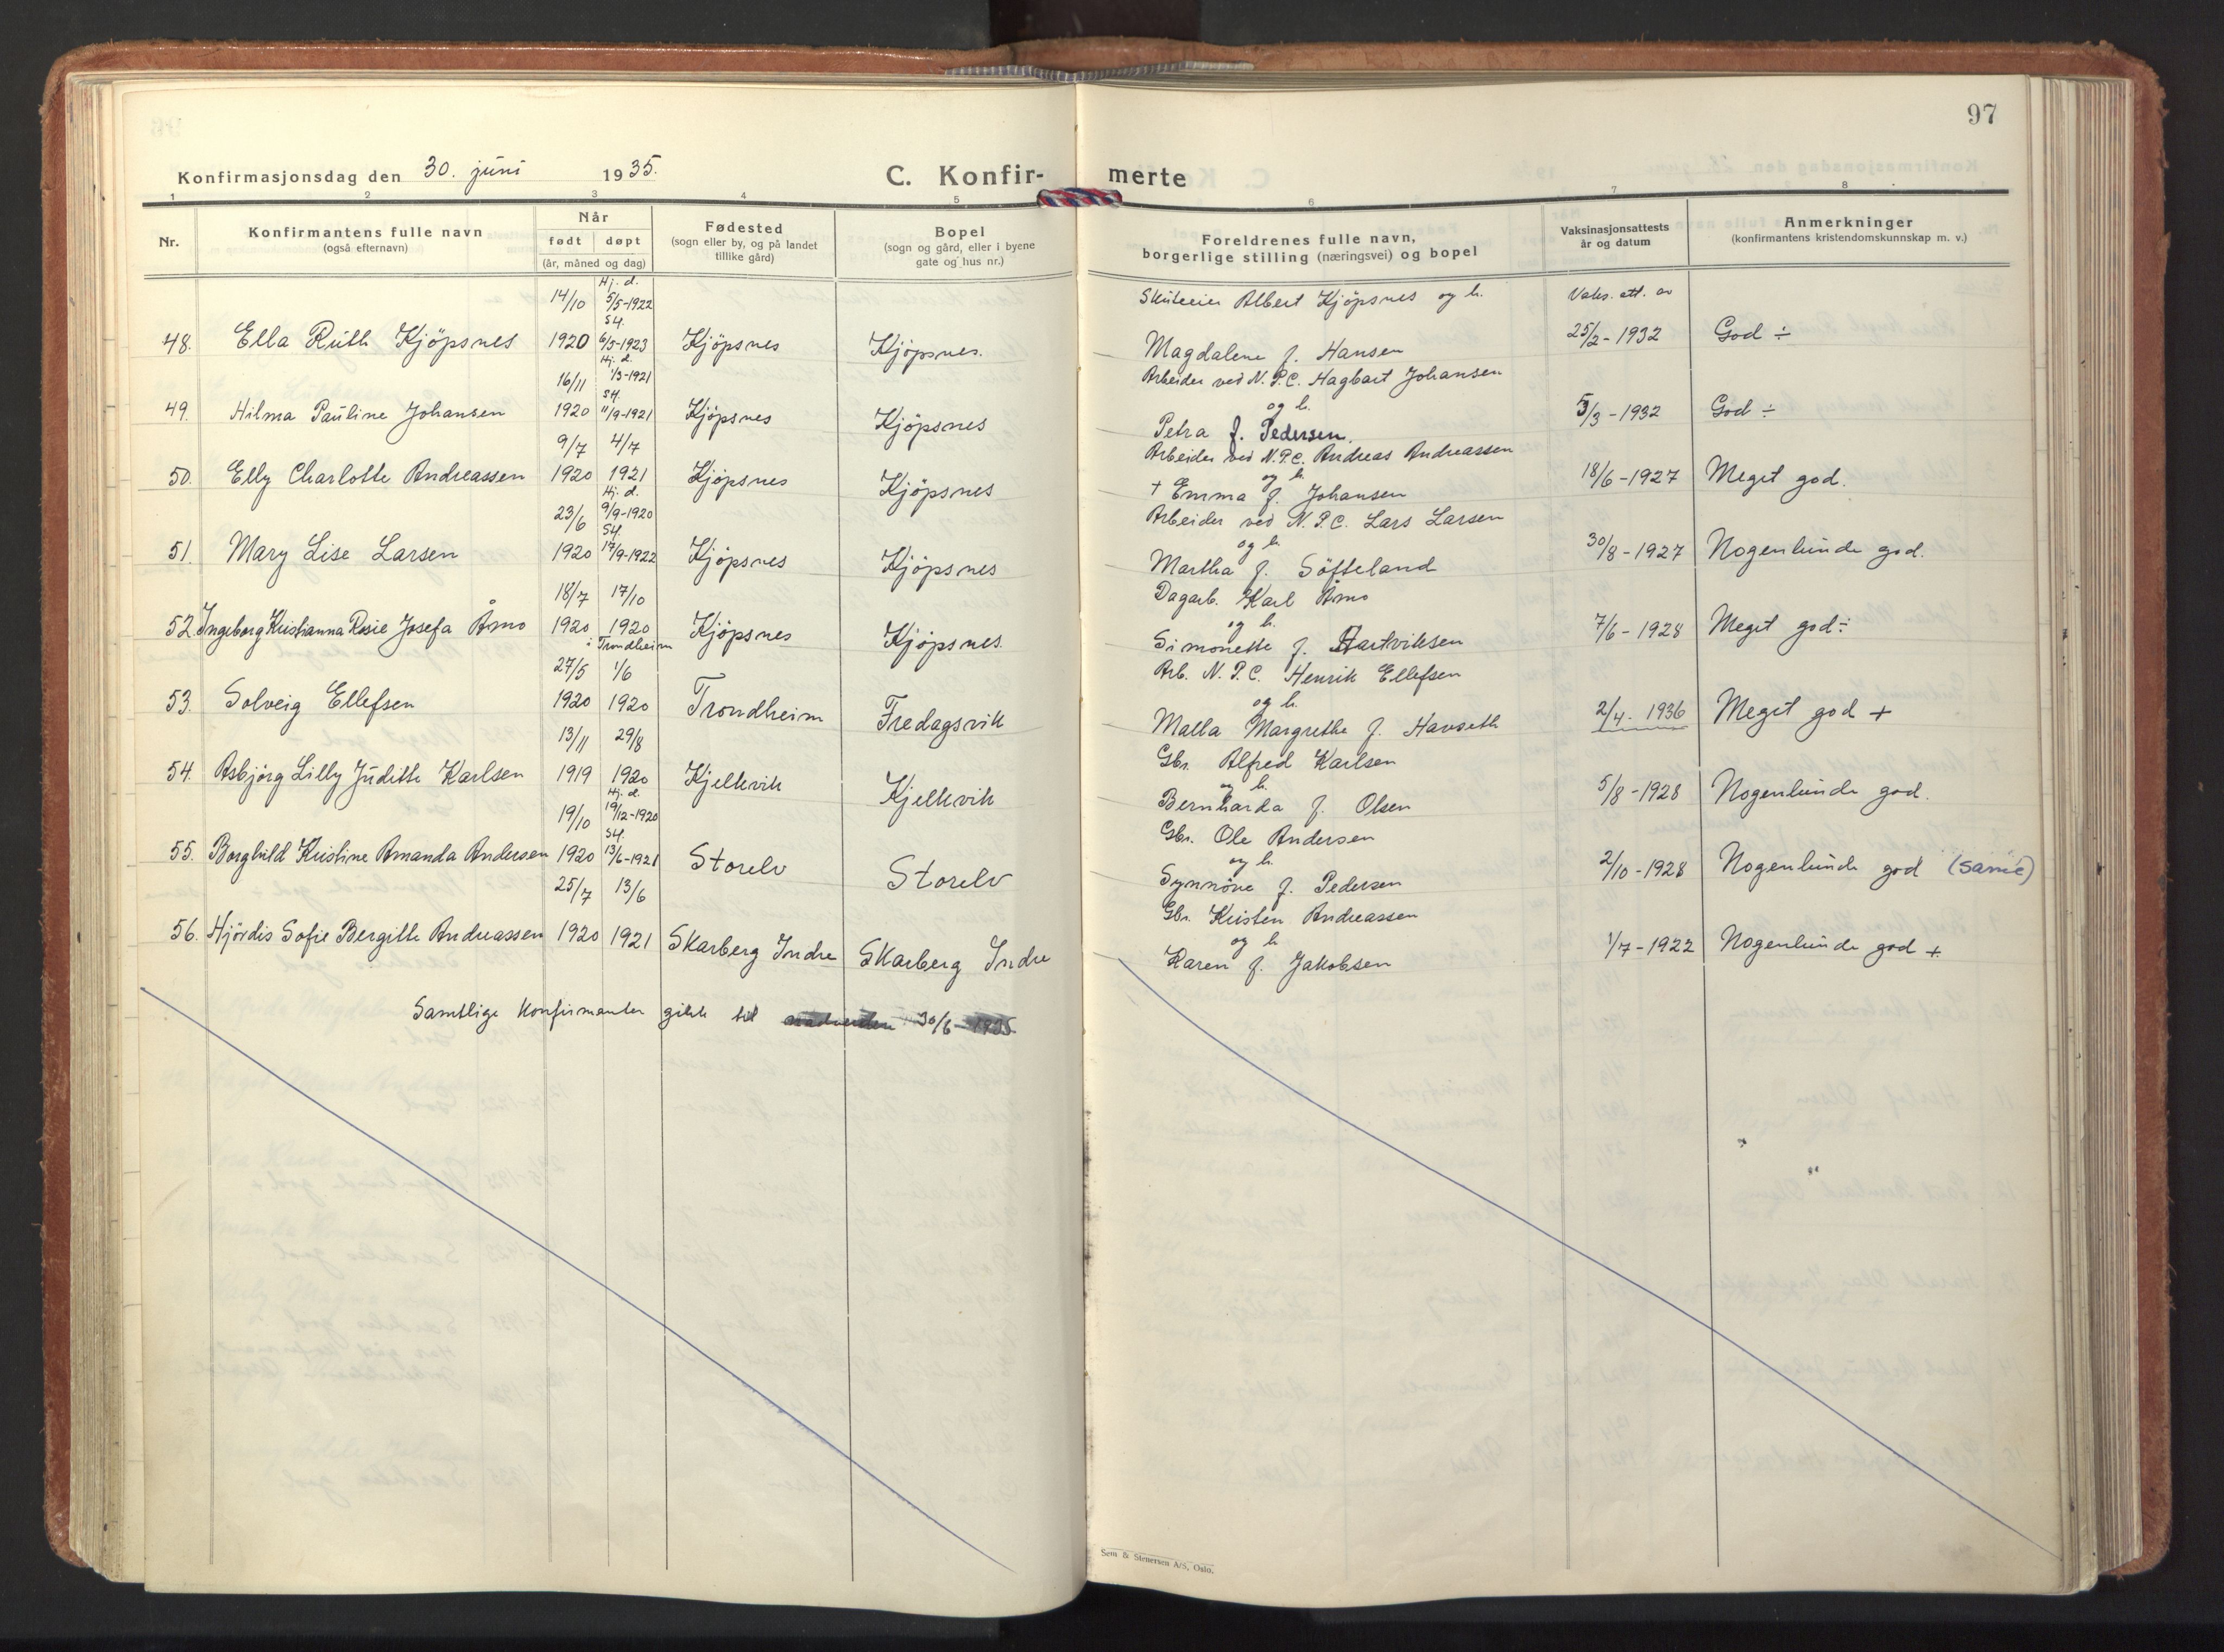 97
Konfirmasjonsdag den 30. juni 1935.
C. Konfirmerte
1 2 3 4 5 6 7 8
Nr.
Konfirmantens fulle navn
(også efternavn)
Når
født døpt
(år, måned og dag)
Fødested
(sogn eller by, og på landet
tillike gård)
Bopel
(sogn og gård, eller i byene
gate og hus nr.)
Foreldrenes fulle navn,
borgerlige stilling (næringsvei) og bopel
Vaksinasjonsattests
år og datum
Anmerkninger
(konfirmantens kristendomskunnskap m. v.)
Hj. d.
14/10 5/5-1922 Skuteeier Albert Kjöpsnes og h. Vaks. att. av
St.
48. Ella Ruth Kjöpsnes 1920 6/5-1923 Kjöpsnes Kjöpsnes. Magdalene f. Hansen 25/2-1932 God ÷
Hj. d.
16/11 1/3-1921 Arbeider ved N.P.C. Hagbart Johansen
St. og h.
49. Hilma Pauline Johansen 1920 11/9-1921 Kjöpsnes Kjöpsnes Petra f. Pedersen. 5/3-1932 God ÷
9/7 4/7 Arbeider ved N.P.C. Andreas Andreassen
og h.
50. Elly Charlotte Andreassen 1920 1921 Kjöpsnes Kjöpsnes + Emma f. Johansen 18/6-1927 Meget god.
Hj. d.
23/6 9/9-1920 Arbeider ved N.P.C. Lars Larsen
St. og h.
51. Mary Lise Larsen 1920 17/9-1922 Kjöpsnes Kjöpsnes Martha f. Söfteland 30/8-1927 Nogenlunde god.
18/7 17/10 Dagarb. Karl Åmo
og h.
52. Ingeborg Kristianna Rosie Josefa Åmo 1920 1920 Kjöpsnes Kjöpsnes. Simonette f. Hartviksen 7/6-1928 Meget god ÷
i Trondheim
27/5 1/6 Arb. N.P.C. Henrik Ellefsen
og h.
53. Solveig Ellefsen 1920 1920 Trondheim Fredagsvik Malla Margrethe f. Hauseth 2/4-1936 Meget god +
13/11 29/8 Gbr. Alfred Karlsen
og h.
54. Asbjörg Lilly Juditte Karlsen 1919 1920 Kjelkvik Kjelkvik Bernharda f. Olsen 5/8-1928 Nogenlunde god.
Hj. d.
19/10 19/12-1920 Gbr. Ole Andersen
St. og h.
55. Borghild Kristine Amanda Andersen 1920 13/6-1921 Storelv Storelv Synnöve f. Pedersen 2/10-1928 Nogenlunde god (same)
25/7 13/6 Gbr. Kristen Andreassen
og h.
56. Hjördis Sofie Bergitte Andreassen 1920 1921 Skarberg Indre Skarberg Indre Karen f. Jakobsen 1/7-1922 Nogenlunde god +
Samtlige konfirmanter gikk til 30/6-1935.
Sem & Stenersen A/S, Oslo.